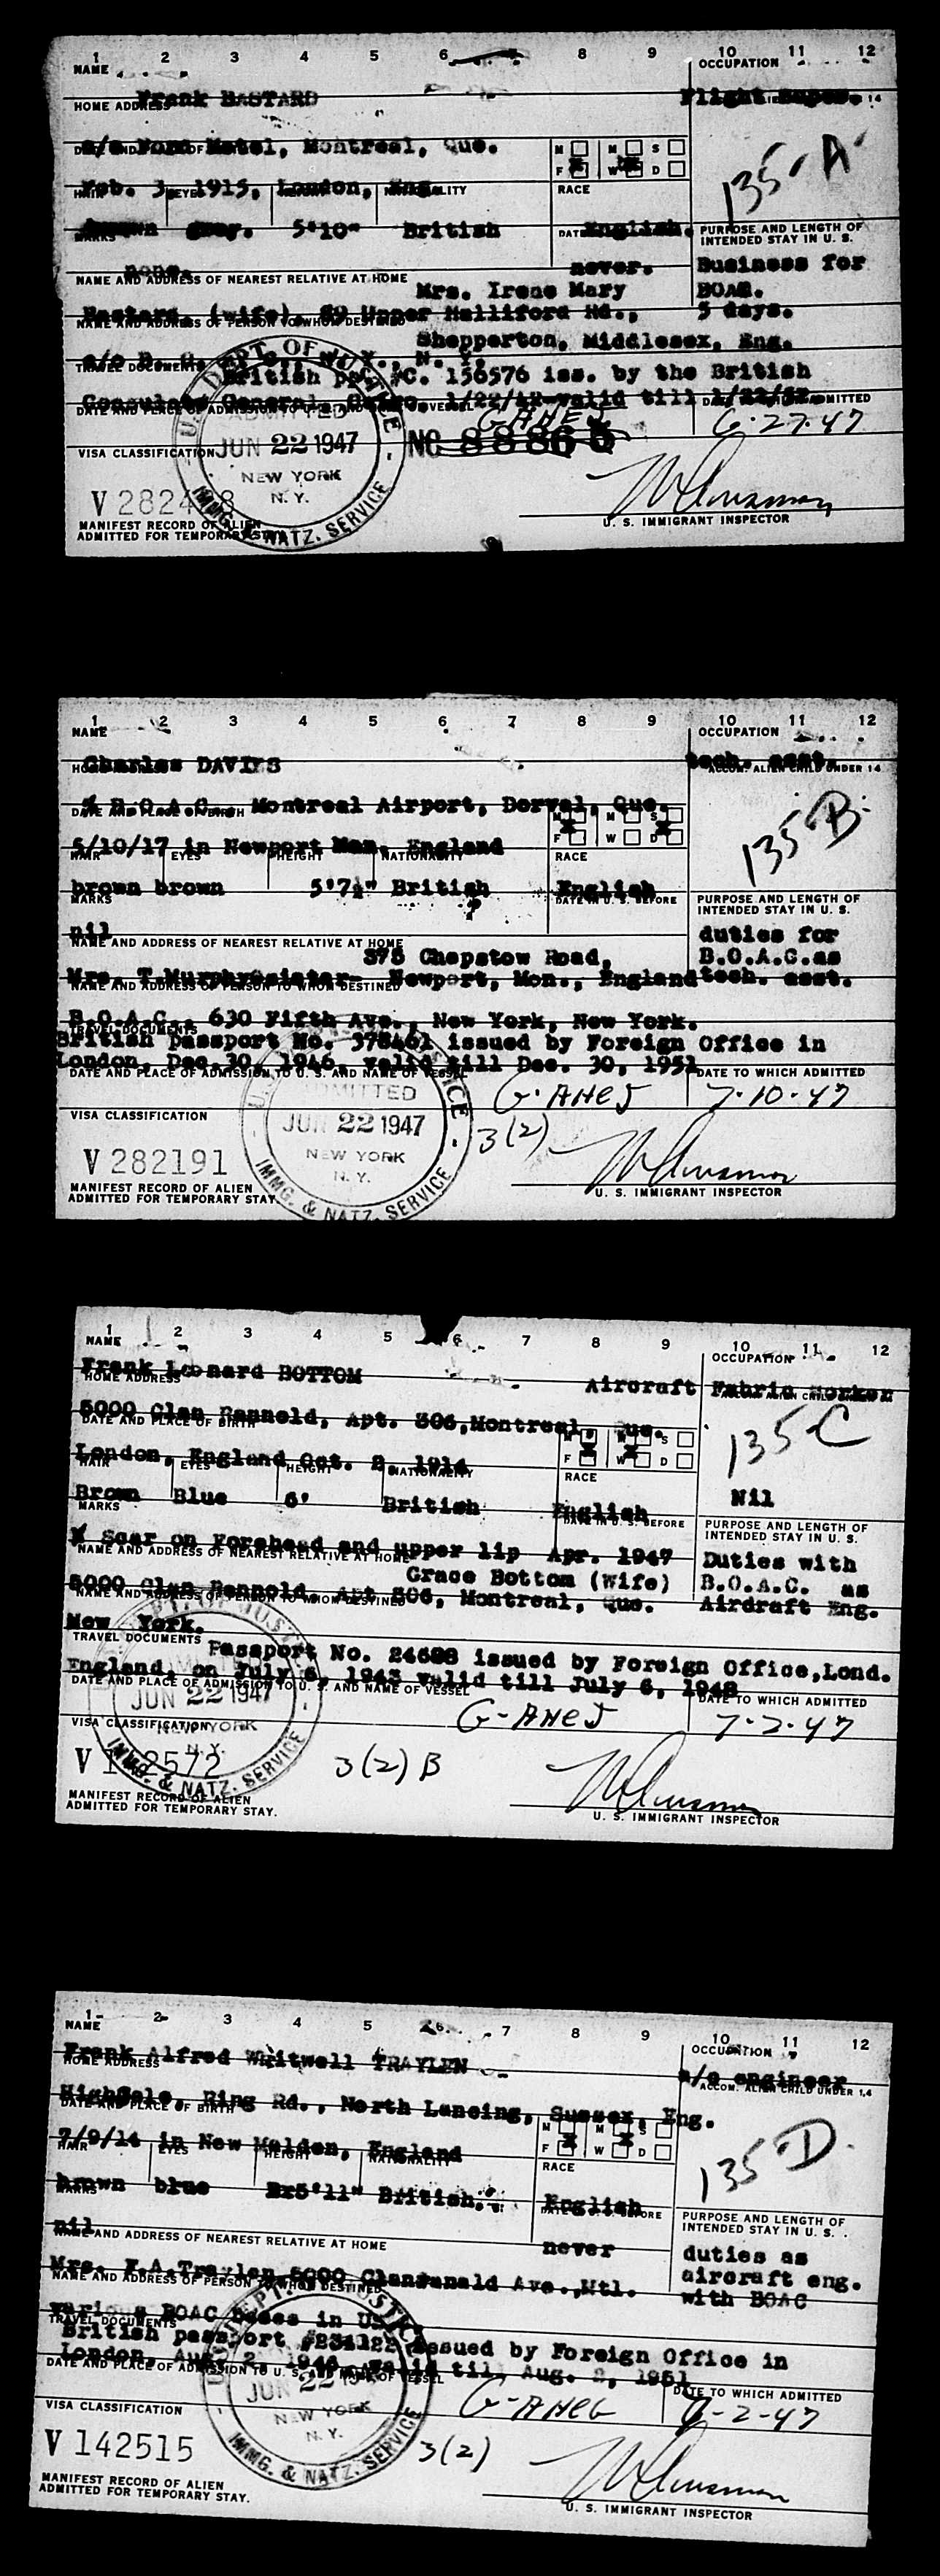 1 2 3 4 5 6 7 8 9 10 11 12
NAME OCCUPATION
Frank BASTARD Flight Super.
HOME ADDRESS 14
c/o Ford Hotel, Montreal, Que.
M M S
F W D
135-A
Feb. 3, 1915, London, Eng.
HAIR EYES NATIONALITY RACE
brown grey. 5'10" British English.
MARKS DATE PURPOSE AND LENGTH OF
INTENDED STAY IN U. S.
none. never. Business for
NAME AND ADDRESS OF NEAREST RELATIVE AT HOME
Mrs. Irene Mary BOAC.
Bastard, (wife), 59 Upper Halliford Rd., 5 days.
NAME AND ADDRESS OF PERSON TO WHOM DESTINED
Shepperton, Middlesex, Eng.
N. Y.
TRAVEL DOCUMENTS
British pp. #C. 156576 iss. by the British
Consulate General, Cairo, 1/22/42 valid till
DATE AND PLACE OF ADMISSION TO U. S. AND NAME OF VESSEL DATE TO WHICH ADMITTED
G-AHEJ 6-27-47
VISA CLASSIFICATION
U. S. DEPT. OF JUSTICE
ADMITTED
JUN 22 1947
NEW YORK
N. Y.
IMMG. & NATZ. SERVICE
NO 88865
V 282428
U. S. IMMIGRANT INSPECTOR
MANIFEST RECORD OF ALIEN
ADMITTED FOR TEMPORARY STAY.
1 2 3 4 5 6 7 8 9 10 11 12
NAME OCCUPATION
Charles DAVIES tech. asst.
HOME ADDRESS ACCOM. ALIEN CHILD UNDER 14
% B.O.A.C., Montreal Airport, Dorval, Que.
DATE AND PLACE OF BIRTH
M M S
F W D
135-B-
5/10/17 in Newport Mon. England
HAIR EYES HEIGHT NATIONALITY RACE
brown brown 5'7½" British English
MARKS DATE IN U. S. BEFORE PURPOSE AND LENGTH OF
INTENDED STAY IN U. S.
nil duties for
NAME AND ADDRESS OF NEAREST RELATIVE AT HOME
375 Chepstow Road, B.O.A.C. as
Mrs. T.Murphy-sister- Newport, Mon., England tech. asst.
NAME AND ADDRESS OF PERSON TO WHOM DESTINED
B.O.A.C., 630 Fifth Ave., New York, New York.
TRAVEL DOCUMENTS
British passport No. 378461 issued by Foreign Office in
London, Dec.30, 1946, valid till Dec. 30, 1951
DATE AND PLACE OF ADMISSION TO U. S. AND NAME OF VESSEL DATE TO WHICH ADMITTED
G-AHEJ 7-10-47
VISA CLASSIFICATION
ADMITTED
JUN 22 1947
NEW YORK
N. Y.
IMMG. & NATZ. SERVICE
3(2)
V 282191
U. S. IMMIGRANT INSPECTOR
MANIFEST RECORD OF ALIEN
ADMITTED FOR TEMPORARY STAY.
1 2 3 4 5 6 7 8 9 10 11 12
NAME OCCUPATION
Frank Leonard BOTTOM Aircraft Fabric Worker
HOME ADDRESS
5000 Clan Rannold, Apt. 306, Montreal Que.
DATE AND PLACE OF BIRTH
M M S
F W D
135 C
London, England Oct. 2, 1914
HAIR EYES HEIGHT NATIONALITY RACE
Nil
Brown Blue 6' British English
MARKS DATE IN U. S. BEFORE PURPOSE AND LENGTH OF
INTENDED STAY IN U. S.
Scar on Forehead and upper lip Apr. 1947 Duties with
NAME AND ADDRESS OF NEAREST RELATIVE AT HOME
Grace Bottom (Wife) B.O.A.C. as
5000 Clan Rannold, Apt 306, Montreal, Que. Airdraft Eng.
NAME AND ADDRESS OF PERSON TO WHOM DESTINED
New York.
TRAVEL DOCUMENTS
Passport No. 24688 issued by Foreign Office,Lond.
England, on July 6, 1943 valid till July 6, 1948
DATE AND PLACE OF ADMISSION TO U. S. AND NAME OF VESSEL DATE TO WHICH ADMITTED
JUN 22 1947
G-AHEJ 7-2-47
VISA CLASSIFICATION
NEW YORK
N. Y.
IMMG. & NATZ. SERVICE
3(2) B
U. S. IMMIGRANT INSPECTOR
MANIFEST RECORD OF ALIEN
ADMITTED FOR TEMPORARY STAY.
1 2 3 4 5 6 7 8 9 10 11 12
NAME OCCUPATION
Frank Alfred Whitwell TRAYLEN a/c engineer
HOME ADDRESS ACCOM. ALIEN CHILD UNDER 14
Highdole, Ring Rd., North Lancing, Sussex, Eng.
DATE AND PLACE OF BIRTH
M M S
F W D
135 D.
7/9/14 in New Malden, England
HAIR EYES HEIGHT NATIONALITY RACE
brown blue 5'11" British. English
MARKS BEFORE PURPOSE AND LENGTH OF
INTENDED STAY IN U. S.
nil never duties as
NAME AND ADDRESS OF NEAREST RELATIVE AT HOME
aircraft eng.
Mrs. F.A.Traylen 5000 Clanranald Ave.,Mtl. with BOAC
NAME AND ADDRESS OF PERSON TO WHOM DESTINED
various BOAC bases in U.S.
TRAVEL DOCUMENTS
British passport #231122 issued by Foreign Office in
London, Aug. 2, 1946, valid til. Aug. 2, 1951
DATE AND PLACE OF ADMISSION TO U. S. AND NAME OF VESSEL DATE TO WHICH ADMITTED
JUN 22
G-AHEG 7-2-47
VISA CLASSIFICATION
NEW YORK
N. Y.
IMMG. & NATZ. SERVICE
3(2)
V 142515
U. S. IMMIGRANT INSPECTOR
MANIFEST RECORD OF ALIEN
ADMITTED FOR TEMPORARY STAY.